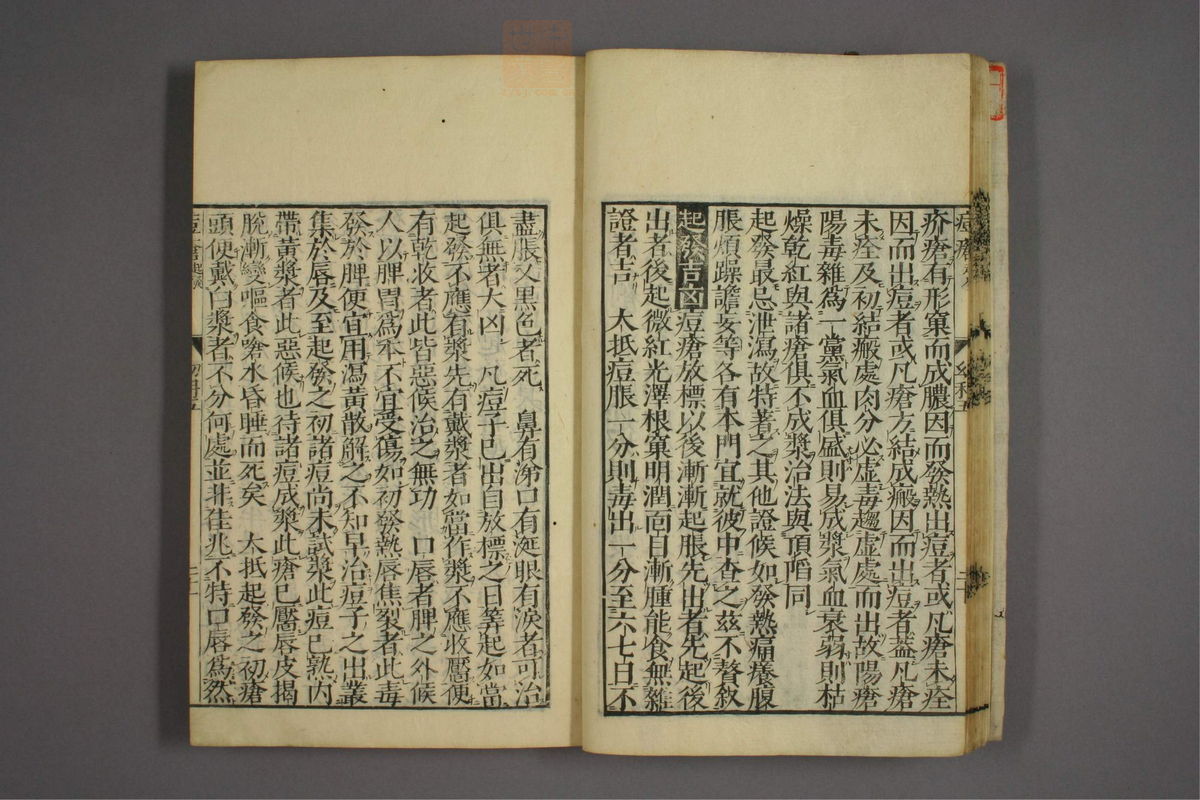 疥瘡有形窠而成膿因而發熱出痘者或凡瘡未痊
因而出痘者或凡瘡方結成瘢因而出痘者蓋凡瘡
未痊及初結瘢處肉分必虛毒趨虛處而出故陽瘡
陽毒雜為一黨氣血俱盛則易成漿氣血衰弱則枯
燥乾紅與諸瘡俱不成漿治法與頂陷同
起發最忌泄瀉故特著之其他證候如發熱痛癢腹
脹煩躁譫妄等各有本門宜就彼中查之茲不贅敘
起發吉凶痘瘡放標以後漸漸起脹先出者先起後
出者後起微紅光澤根窠明潤面目漸腫能食無雜
證者吉 大抵痘脹一分則毒出一分至六七日不
盡脹又黑色者死 鼻有涕口有涎眼有淚者可治
俱無者大凶 凡痘子已出自放標之日等起如當
起發不應有漿先有戴漿者如當作漿不應收靨便
有乾收者此皆惡候治之無功 口唇者脾之外候
人以脾胃為本不宜受傷如初發熱唇焦裂者此毒
發於脾便宜用瀉黃散解之不知早治痘子之出叢
集於唇及至起發之初諸痘尚未試漿此痘已熟內
帶黃漿者此惡候也待諸痘成漿此瘡已靨唇皮揭
脫漸變嘔食嗆水昏睡而死矣 大抵起發之初瘡
頭便戴白漿者不分何處並非佳兆不特口唇為然
痘瘡起發